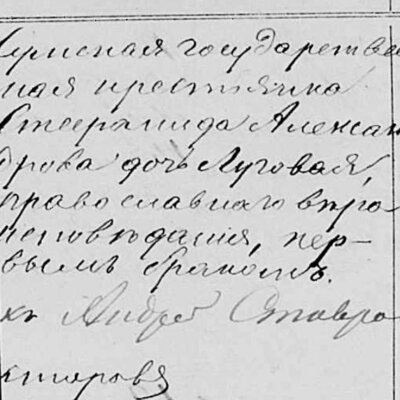 Сумская государствен
ная крестьянка
Степанида Алексан
дрова дочь Луговая,
православнаго вѣро
исповѣданія, пер-
вымъ бракомъ.
Андрей Ставро